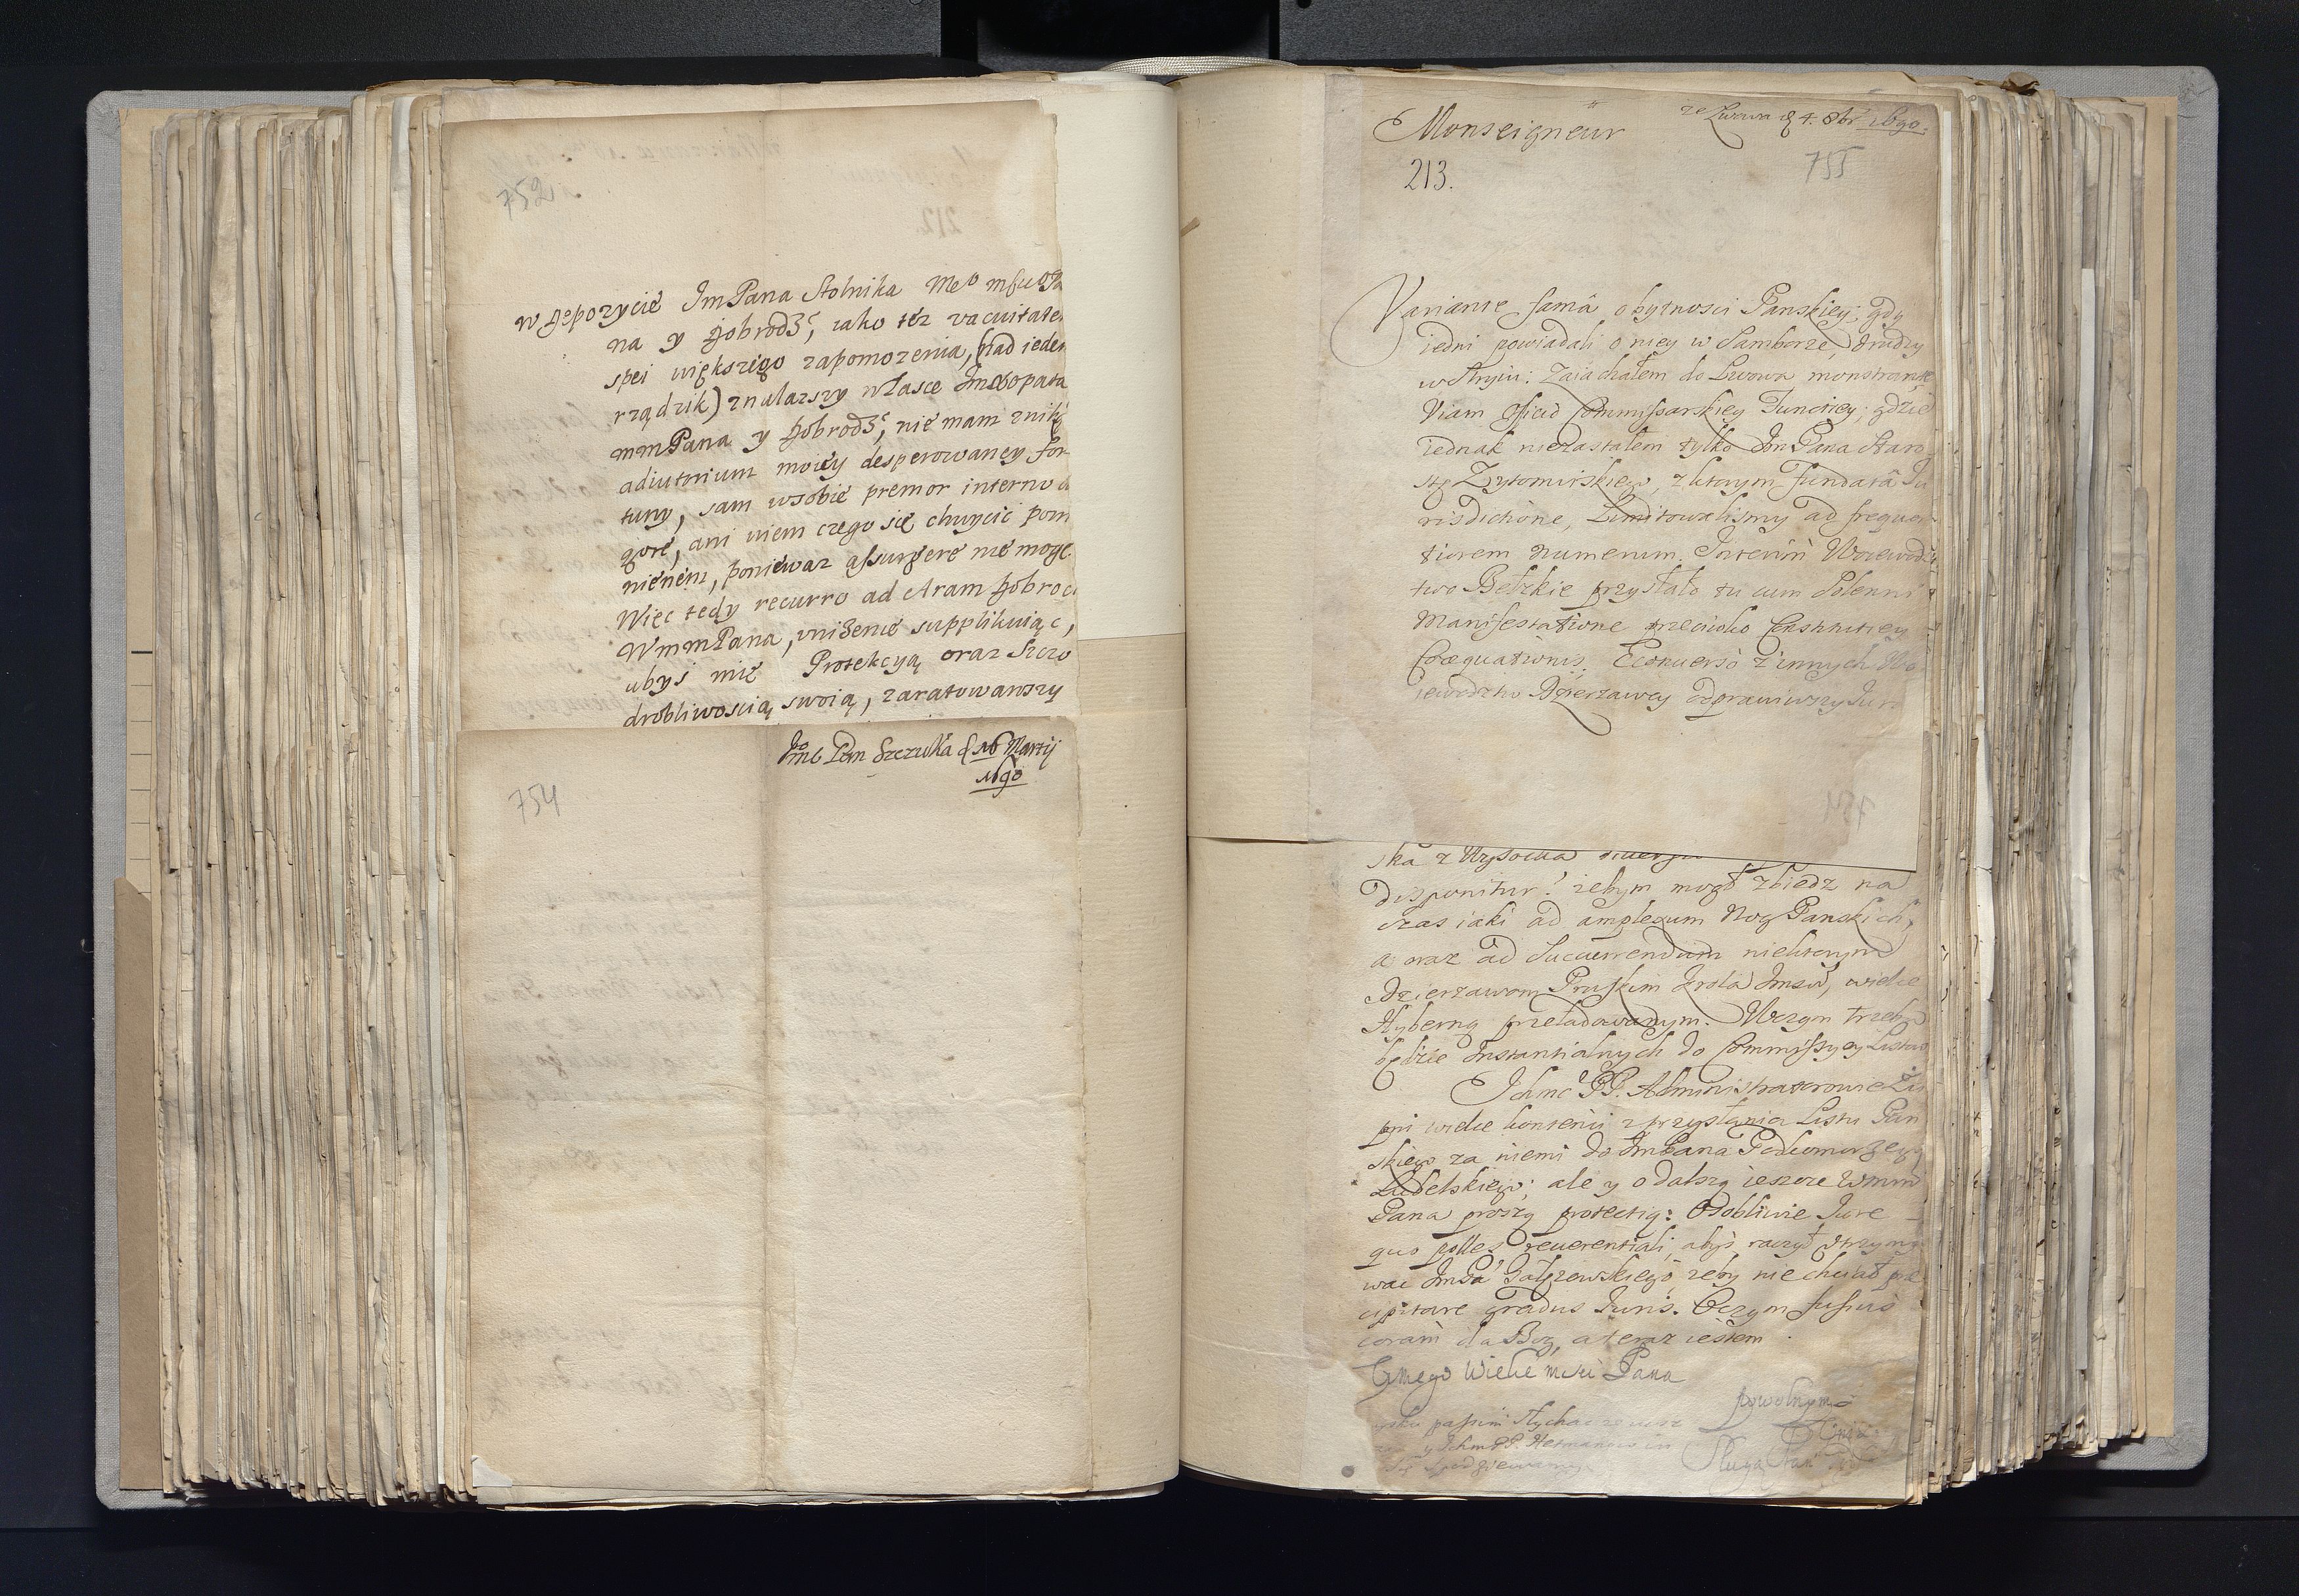 752
w depozycie Jm Pana Stolnika
na y Dobrodz, iako też vacuitatem
spei większego zapomozenia, (nad ieden
rządzik) znalazszy w Łasce
mmPana y Dobrodz, nie mam znik
adiutorium moiey desperowaney for
tuny, sam wsobie premor interno
gore, ani wiem czego się chwycic
nieném, ponieważ assurgere nie mogę
Więc tedy recurro ad Aram Dobroci
WmmPana, uniżenie supplikuiąc,
abyś mię Protekcyą oraz Szczo
drobliwoscią swoią, zaratowawszy
Jmć Pan Szczuka d 16 Martij
1690
754
Monseigneur
ze Lwowa d 4. 8br 1690.
213.
755
Varianie sama o bytnosci Panskiey; gdy
iedni powiadali o niey w Samborze, drudzy
w Stryiu: Zaiachałem do Lwowa monstrante
Viam officio Commissarskiey Functiey; gdzie
iednak niezastałem tylko Jm Pana Staro
stę Zytomirskiego, z ktorym fundata Ju
risdictione, Limitowalismy ad frequen
tiorem numerum. Interim Woiewodz
two Bełzkie przysłało tu cum Solenni
Manifestatione przeciwko Constitutiey
Coaequationis. Econuerso z innych Wo
iewodztw Dzierzawcy odprawiwszy Jur
ska z Wysocka
disponitur? żebym mogł zbiedz na
czas iaki ad amplexum Nog Panskich,
a oraz ad Succurrendum niektorym
Dzierzawom Pruskim Krola Jmsci, wielce
Hyberną przeładowanym. Wczym trzeba
będzie Instantialnych do Commissyey Listow
Ichmć PP. Administratorowie Żu
pni wielce kontenci z przysłania Listu Pan
skiego za niemi do JmPana Podkomorzego
Lubelskiego; ale y o dalszą ieszcze Wmm
Pana proszą protectią: Osobliwie Jure
quo polles reuerentiali, abyś raczył strzymy
wac Gałęzowskiego, żeby nie chciał prae
cipitare gradus Juris. Oczym fusius
coram da Bog, a teraz iestem
Wmego Wielce mści Pana
powolnym
passim słychac
y Ichm PP. Hetmanow
spodziewamy
Sługa